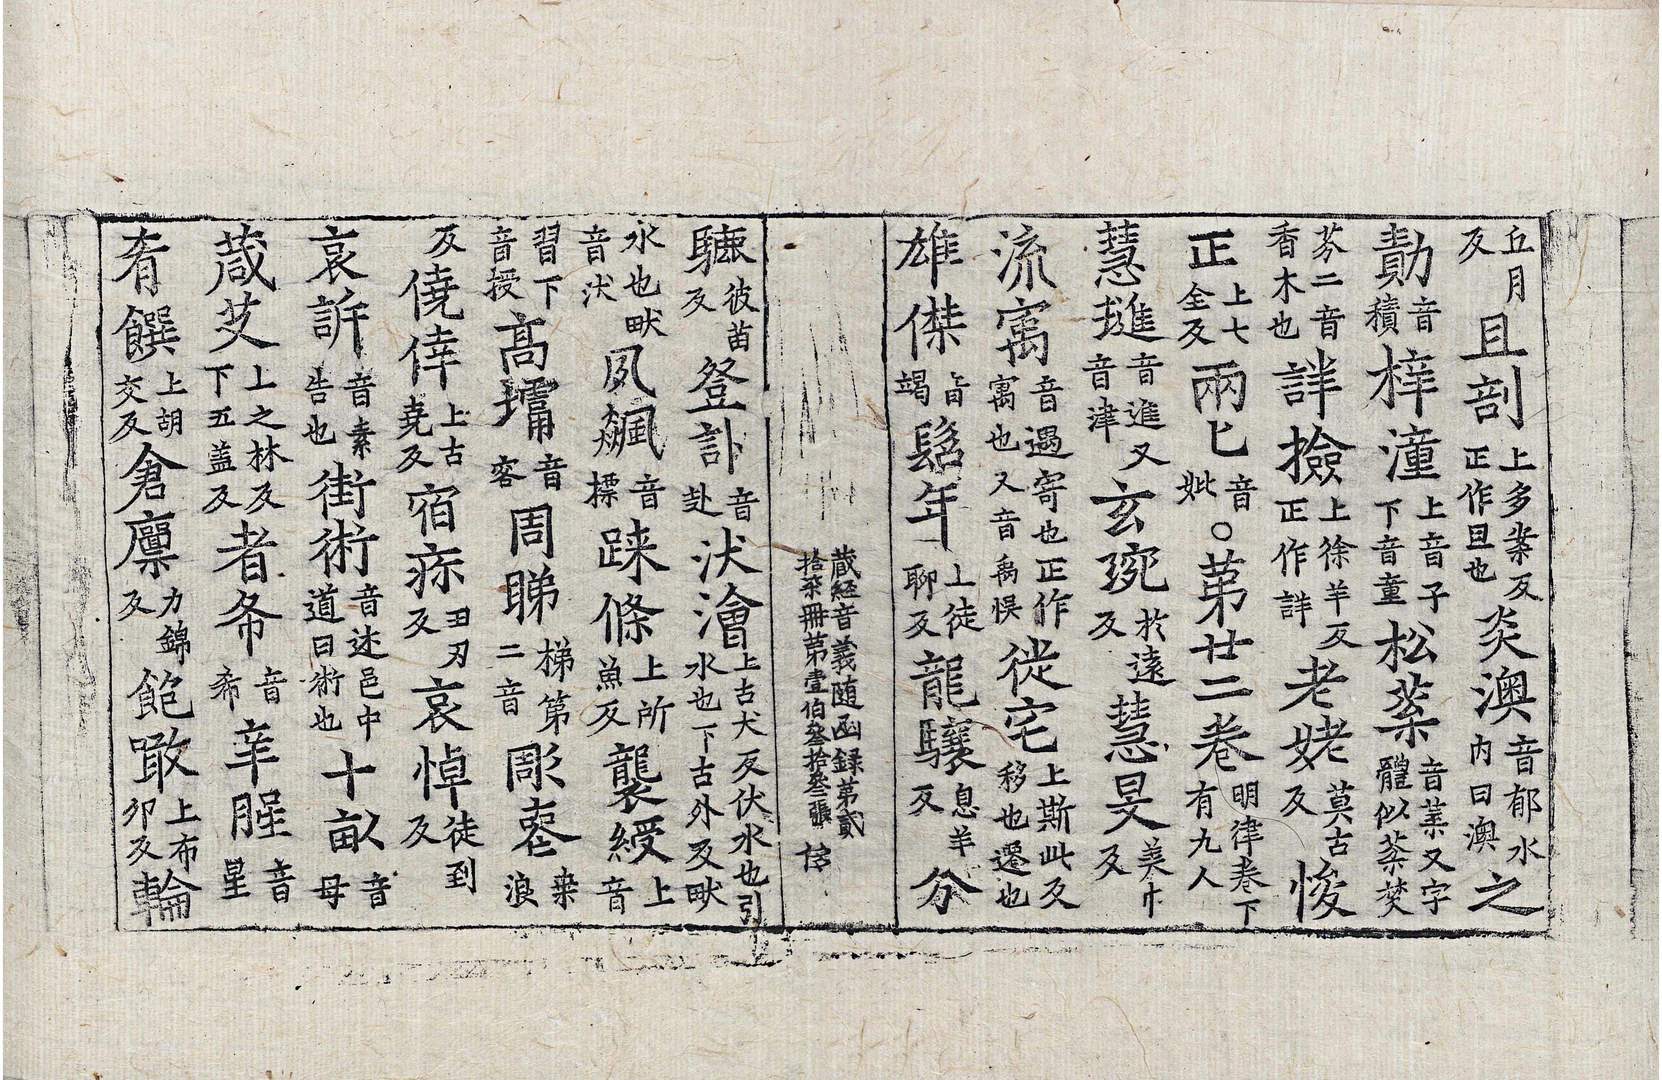 丘月反且剖上多案反正作旦也炎澳音郁水内曰澳之
勣音積梓潼上音子下音童松蕐音葉又字體似棻棼
芬二音香木也詳撿上徐羊反正作詳老姥莫古反悛
正上七全反兩匕音妣○第廿二卷明律卷下有九人
慧㨗音進又音津玄琬於遠反慧旻美巾反
流寓音遇寄也正作寓也又音禹悮從宅上斯此反移也遷也
雄傑音竭髫年上徒聊反龍驤息羊反分
藏經音義随函録第貳拾柒冊第壹伯叁拾叁張
驃彼苗反登訃音赴汱澮上古犬反伏水也引水也下古外反畎
水也畎音汱夙飆音標踈條上所魚反襲綬上音
習下音授高墉音容周睇梯第二音彫𥻦桒浪
反僥倖上古堯反宿疢丑刃反哀悼徒到反
哀訴音素告也街術音述邑中道曰術也十畝音母
葴芠上之林反下五盖反者希音希辛腥音星
肴饌上胡交反倉廩力錦反飽噉上布卯反輪